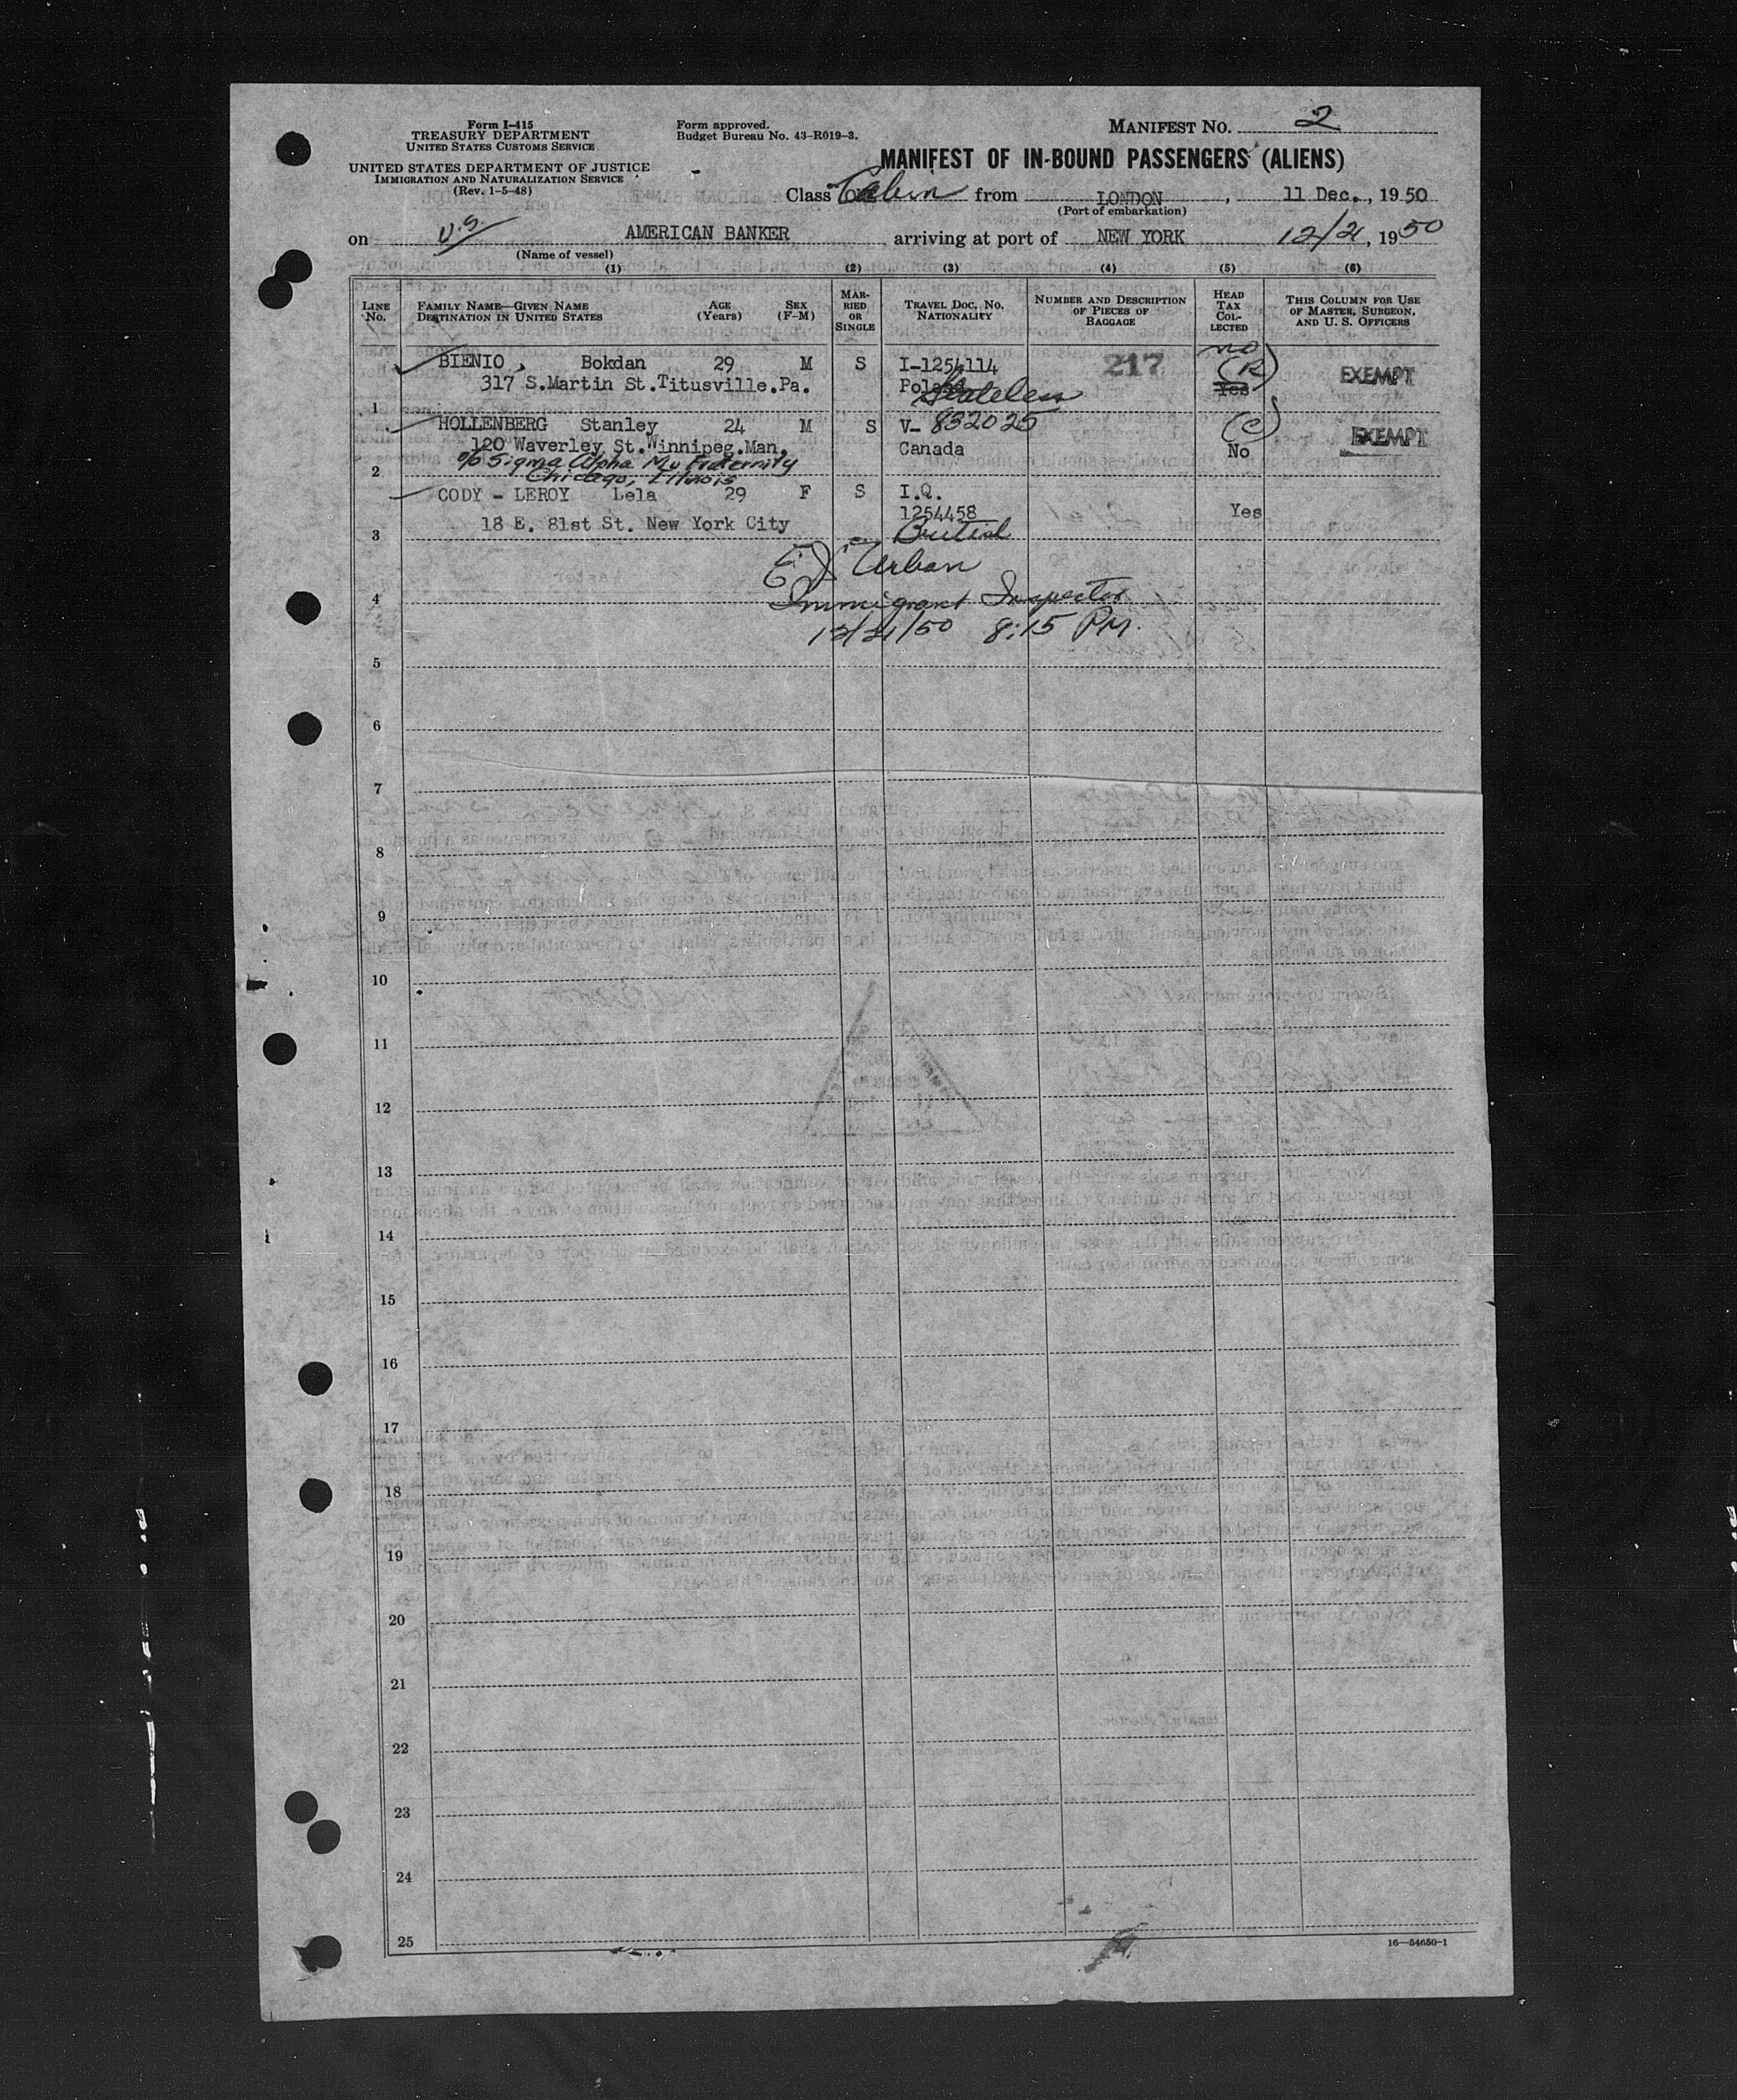 Form I-415
TREASURY DEPARTMENT
UNITED STATES CUSTOMS SERVICE
UNITED STATES DEPARTMENT OF JUSTICE
IMMIGRATION AND NATURALIZATION SERVICE
(Rev. 1-5-48)
Form approved.
Budget Bureau No. 43-R019-3.
MANIFEST NO. 2
MANIFEST OF IN-BOUND PASSENGERS (ALIENS)
Class Cabin from LONDON, 11 Dec., 1950
(Port of embarkation)
on U.S. AMERICAN BANKER arriving at port of NEW YORK 12/21, 1950
(Name of vessel)
(1) (2) (3) (4) (5) (6)
LINE No. FAMILY NAME—GIVEN NAME DESTINATION IN UNITED STATES AGE (Years) SEX (F-M) MARRIED OR SINGLE TRAVEL DOC. NO. NATIONALITY NUMBER AND DESCRIPTION OF PIECES OF BAGGAGE HEAD TAX COLLECTED THIS COLUMN FOR USE OF MASTER, SURGEON, AND U. S. OFFICERS
BIENIO, Bokdan 29 M S I-1254114 217 no (R) EXEMPT
317 S.Martin St.Titusville.Pa. Poland Stateless Yes
1
HOLLENBERG Stanley 24 M S V- 832025 (C) EXEMPT
120 Waverley St.Winnipeg.Man. Canada No
c/o Sigma Alpha Mu Fraternity
2
Chicago, Illinois
CODY - LEROY Lela 29 F S I.Q.
1254458 Yes
18 E. 81st St. New York City
3 British
E J Urban
4 Immigrant Inspector
12/21/50 8:15 PM.
5
6
7
8
9
10
11
12
13
14
15
16
17
18
19
20
21
22
23
24
25
16—54650-1